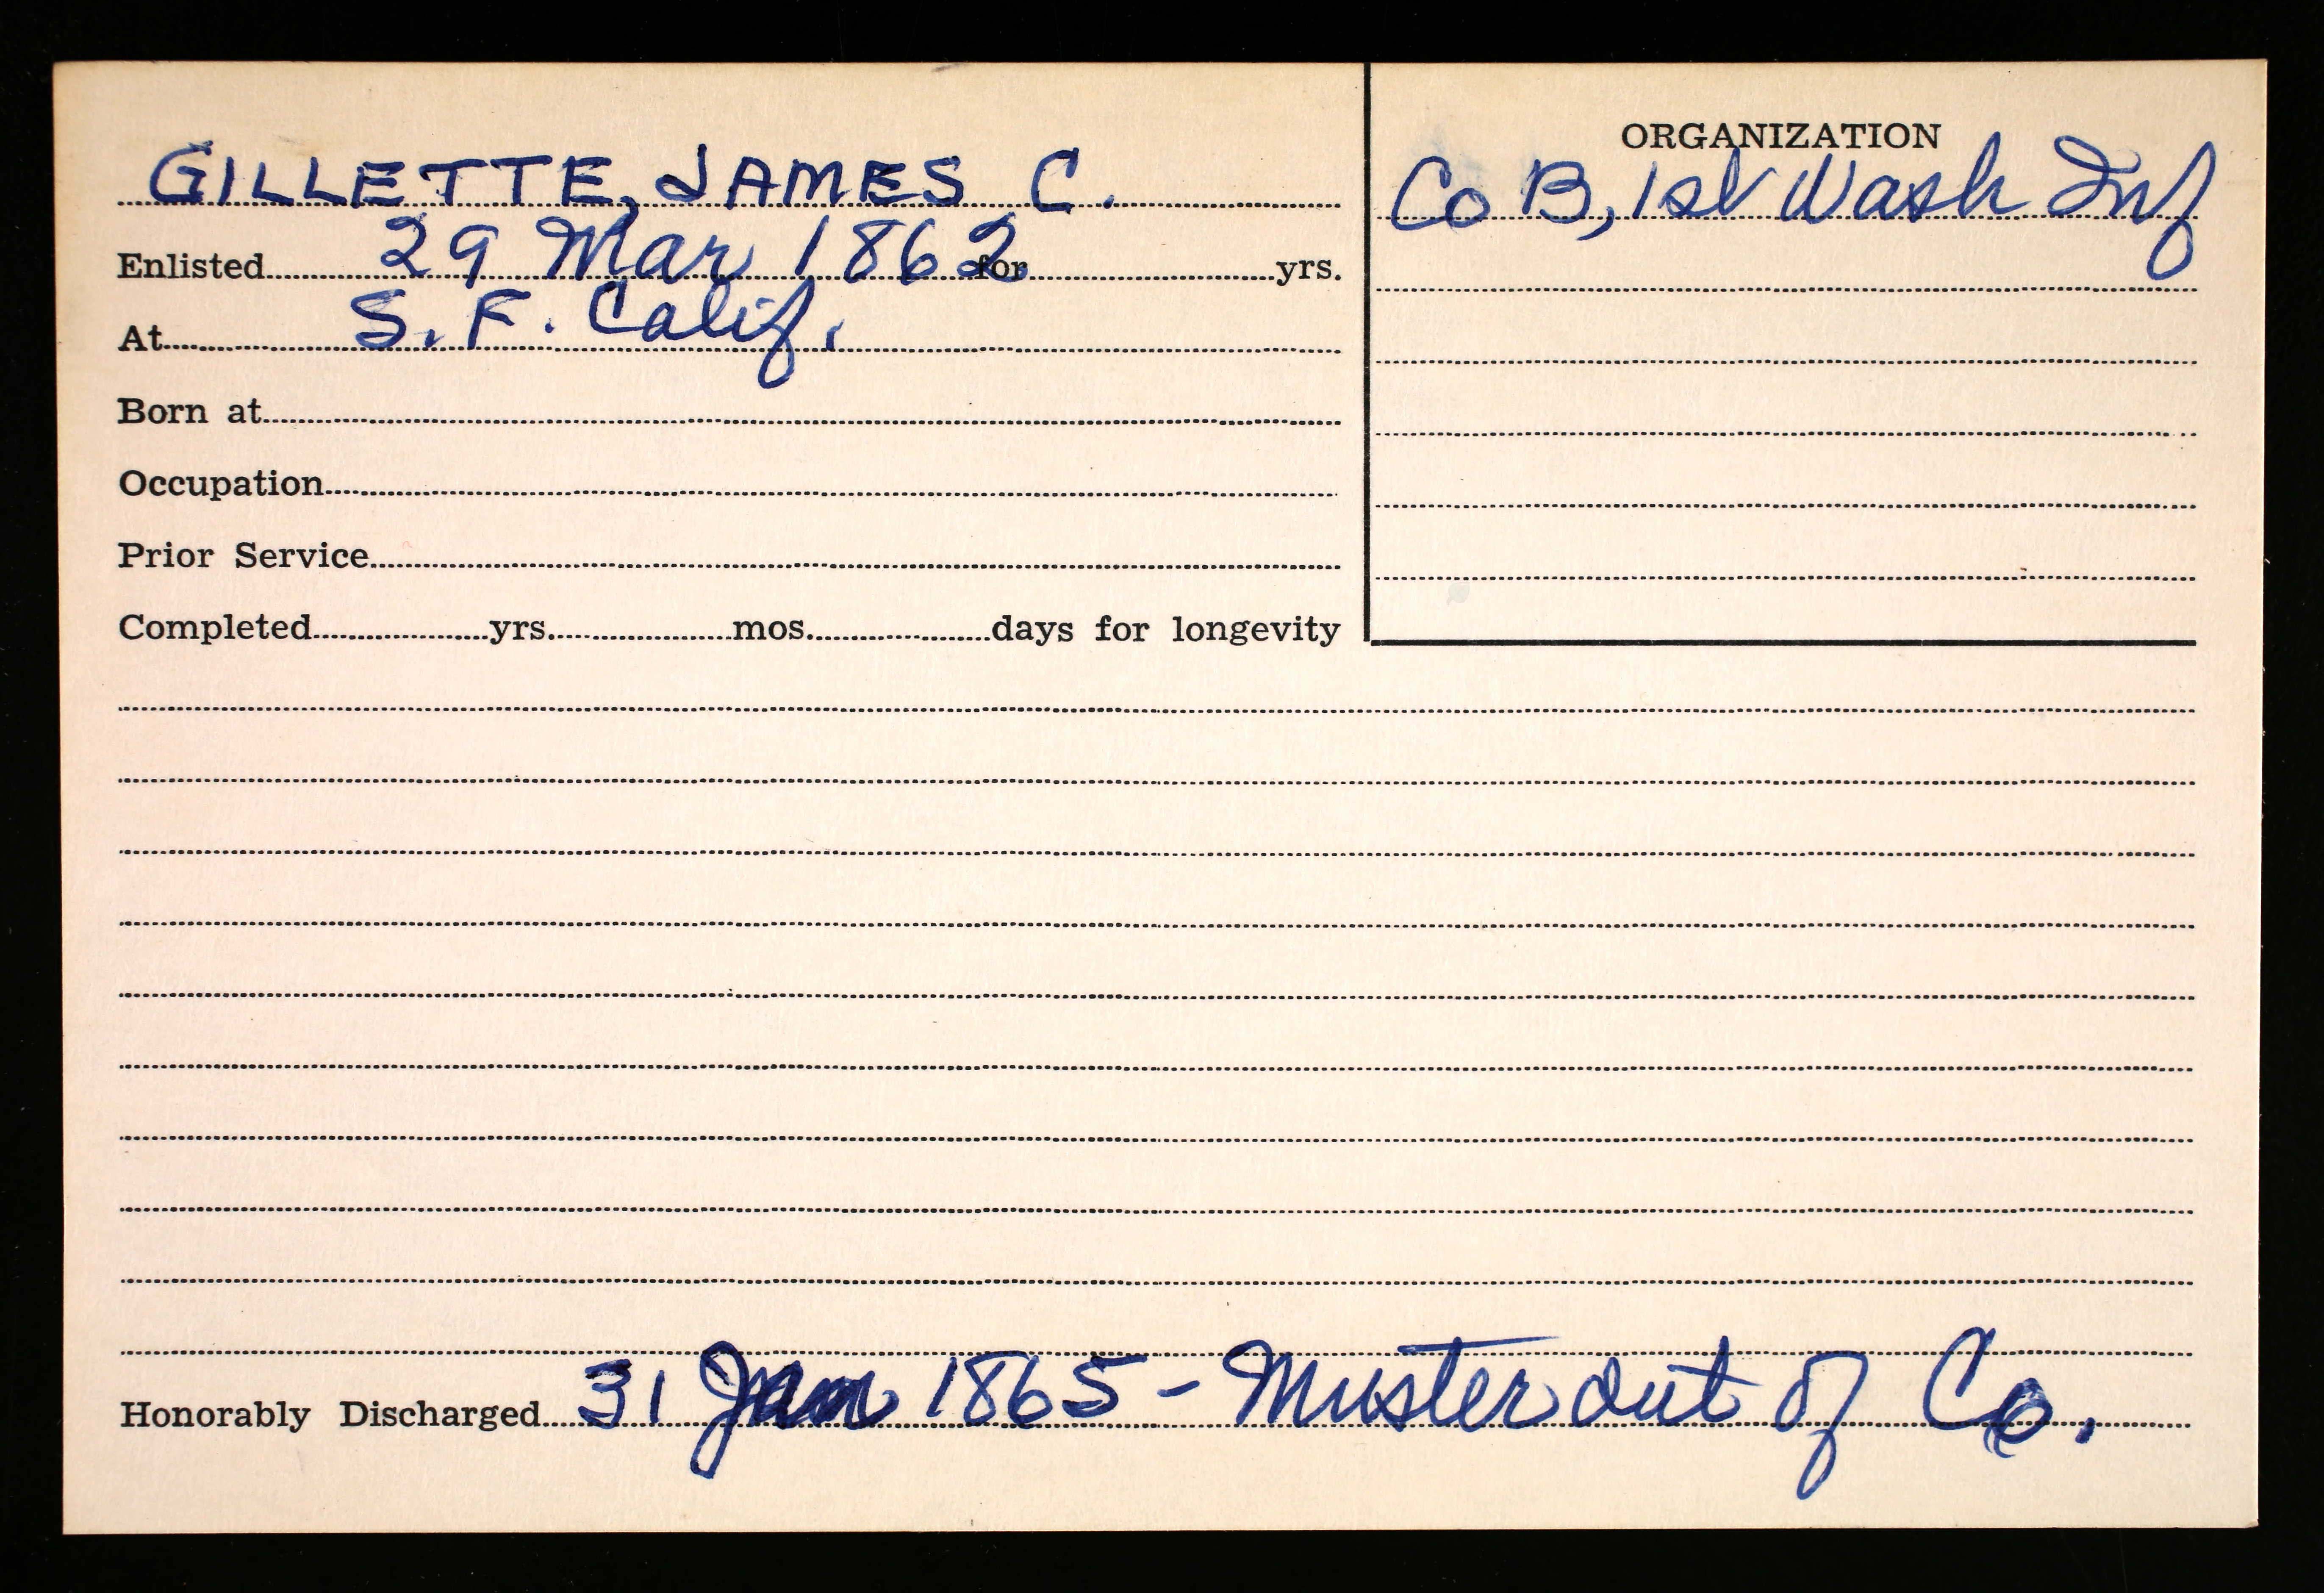 GILLETTE, JAMES C.
Enlisted 29 Mar 1862 for yrs.
At S. F. Calif.
Born at
Occupation
Prior Service
Completed yrs. mos. days for longevity
ORGANIZATION
Co B, 1st Wash Inf
Honorably Discharged 31 Jan 1865 - Muster out of Co.